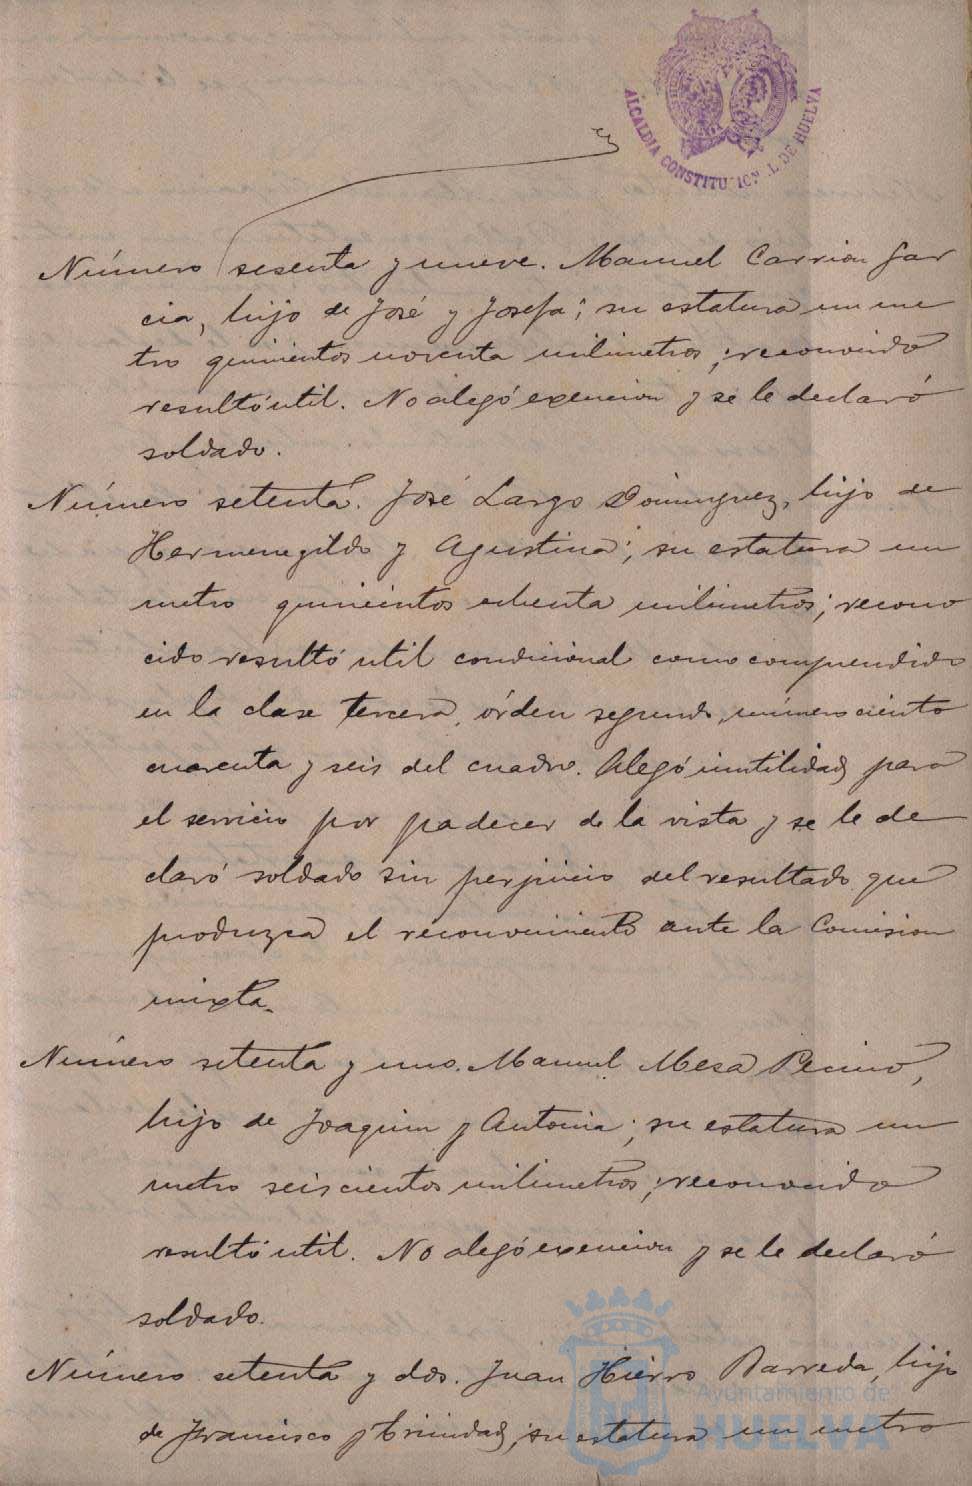 ALCALDIA CONSTITUCIONAL DE HUELVA
Número sesenta y nueve. Manuel Carrion Gar
cia, hijo de José y Josefa; su estatura un me
tro quinientos noventa milimetros; reconocido
resultó util. No alegó exencion y se le declaró
soldado.
Número setenta. José Largo Dominguez, hijo de
Hermenegildo y Agustina; su estatura un
metro quinientos ochenta milimetros; recono
cido resultó util condicional como comprendido
en la clase tercera, órden segundo, número ciento
cuarenta y seis del cuadro. Alegó inutilidad para
el servicio por padecer de la vista y se le de
claró soldado sin perjuicio del resultado que
produzca el reconocimiento ante la Comision
mixta.
Número setenta y uno. Manuel Mesa Pecino,
hijo de Joaquin y Antonia; su estatura un
metro seiscientos milimetros; reconocido
resultó util. No alegó exencion y se le declaró
soldado.
Número setenta y dos. Juan Hierro Barreda, hijo
de Francisco y Trinidad; su estatura un metro
Ayuntamiento de
HUELVA